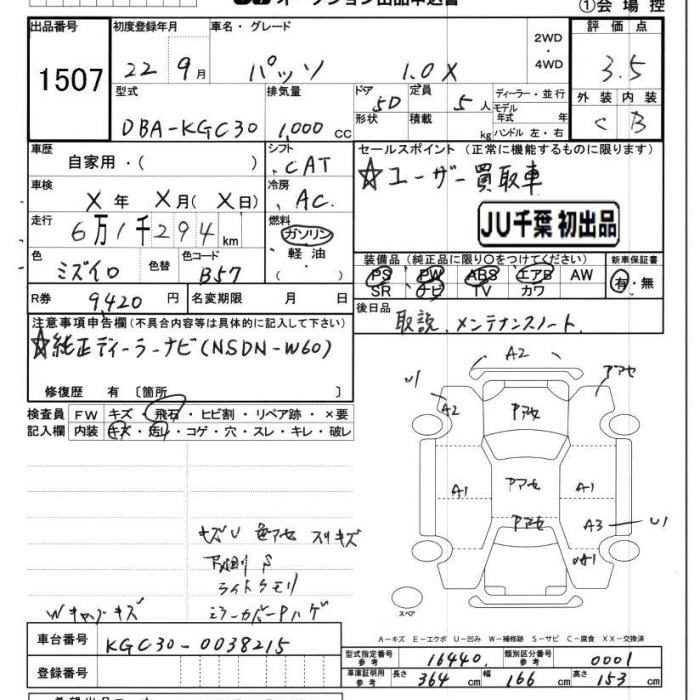 ①会場控
出品番号 初度登録年月 車名・グレード 2WD・4WD 評価点
1507 22年9月 パッソ 1.0X 3.5
型式 排気量 ドア 5D 定員 5人 ディーラー・並行 外装 内装
DBA-KGC30 1,000cc 形状 積載 kg モデル年式 年 ハンドル 左・右 C B
車歴 自家用・( ) シフト CAT セールスポイント (正常に機能するものに限ります)
☆ユーザー買取車
車検 X年 X月(X日) 冷房 AC
JU千葉 初出品
走行 6万1千294km 燃料 ガソリン・軽油・( )
装備品(純正品に限り○をつけてください) 新車保証書
色 ミズイロ 色替 色コード B57
PS PW ABS エアB AW 有・無
SR ナビ TV カワ
R券 9420円 名変期限 月 日
後日品 取説、メンテナンスノート
注意事項申告欄(不具合内容等は具体的に記入して下さい)
☆純正ディーラーナビ(NSDN-W60)
修復歴 有〔箇所 〕
検査員記入欄 FW キズ・飛石・ヒビ割・リペア跡・×要
内装 キズ・汚レ・コゲ・穴・スレ・キレ・破レ
A2
U1 A2 アアセ
アアセ
A1 アアセ A1
アアセ A3 U1
スペア
キズU 色アセ スリキズ
ライトクモリ
Wキャップキズ ミラーカバーPハゲ
A-キズ E-エクボ U-凹み W-補修跡 S-サビ C-腐食 XX-交換済
車台番号 KGC30-0038215
登録番号
型式指定番号 参考 16440 類別区分番号 参考 0001
車庫証明用 参考 長さ 364cm 幅 166cm 高さ 153cm